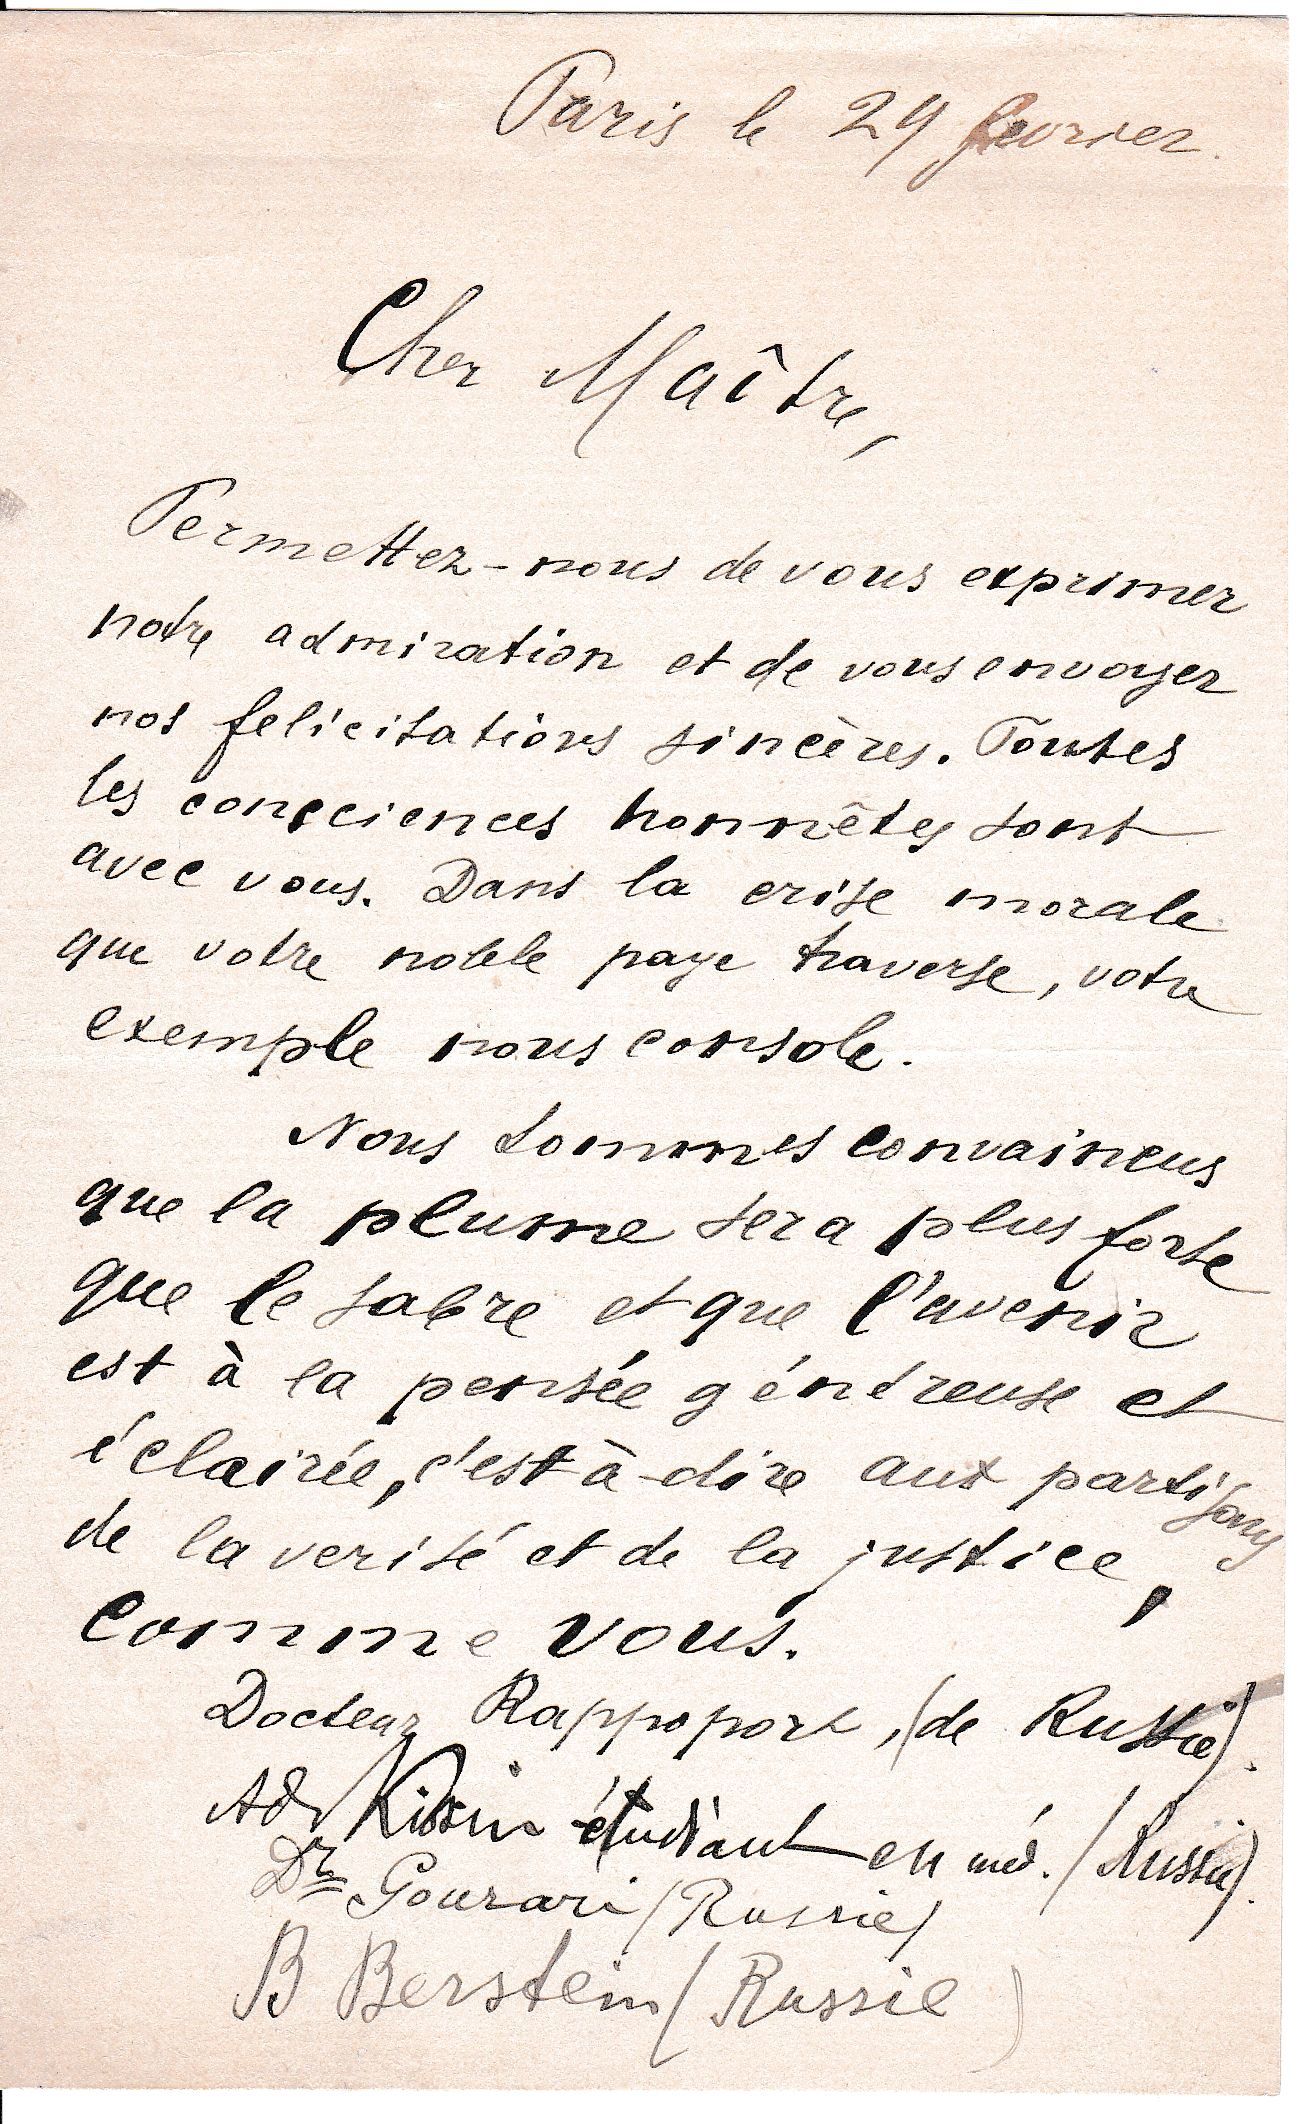 Paris le 24 fevrier.
Cher Maître,
Permettez-nous de vous exprimer
notre admiration et de vous envoyer
nos felicitations sincères. Toutes
les consciences honnêtes sont
avec vous. Dans la crise morale
que votre noble pays traverse, votre
exemple nous console.
Nous sommes convaincus
que la plume sera plus forte
que le sabre et que l'avenir
est à la pensée généreuse et
éclairée, c'est à-dire aux partisans
de la verité et de la justice,
comme vous.
Docteur Rappoport, (de Russie).
Ad. Kissin étudiant en méd. (Russie).
Dr Gourari (Russie)
B Berstein (Russie)